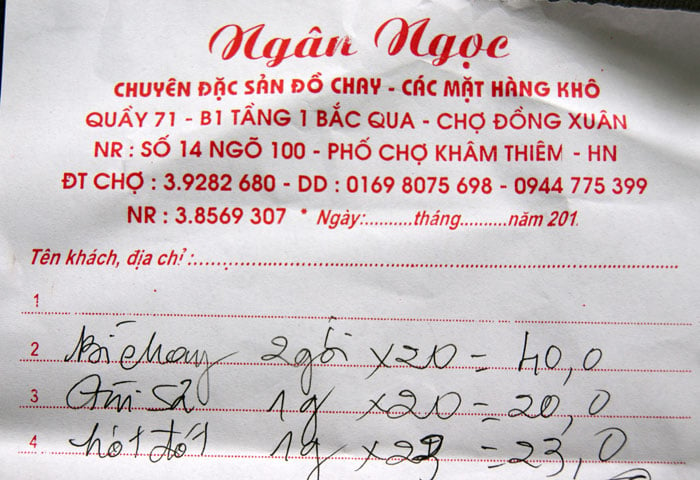 Ngân Ngọc
CHUYÊN ĐẶC SẢN ĐỒ CHAY - CÁC MẶT HÀNG KHÔ
QUẦY 71 - B1 TẦNG 1 BẮC QUA - CHỢ ĐỒNG XUÂN
NR : SỐ 14 NGÕ 100 - PHỐ CHỢ KHÂM THIÊM - HN
ĐT CHỢ : 3.9282 680 - DD : 0169 8075 698 - 0944 775 399
NR : 3.8569 307 * Ngày:..........tháng..........năm 201.
Tên khách, địa chỉ :
1
2 Bì chay 2 gói x20 = 40,0
3 1g x20 = 20,0
4 1g = 23,0